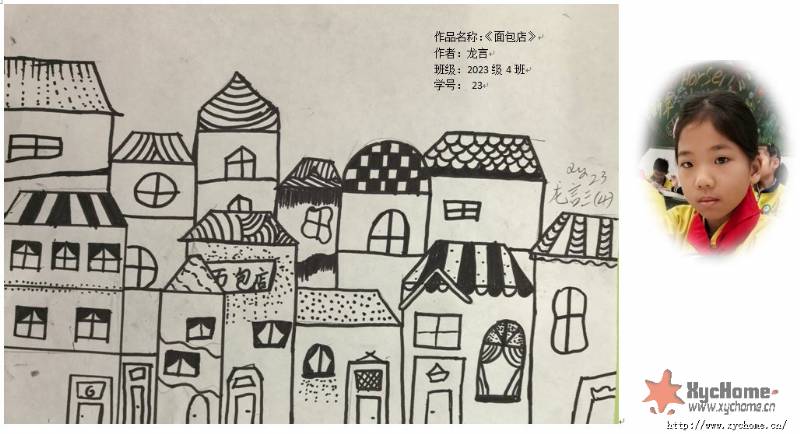 作品名称:《面包店》
作者：龙言
班级：2023级4班
学号： 23
23
龙言三(4)
包店
6
XycHome
www.xychome.cn
http://www.xychome.cn/